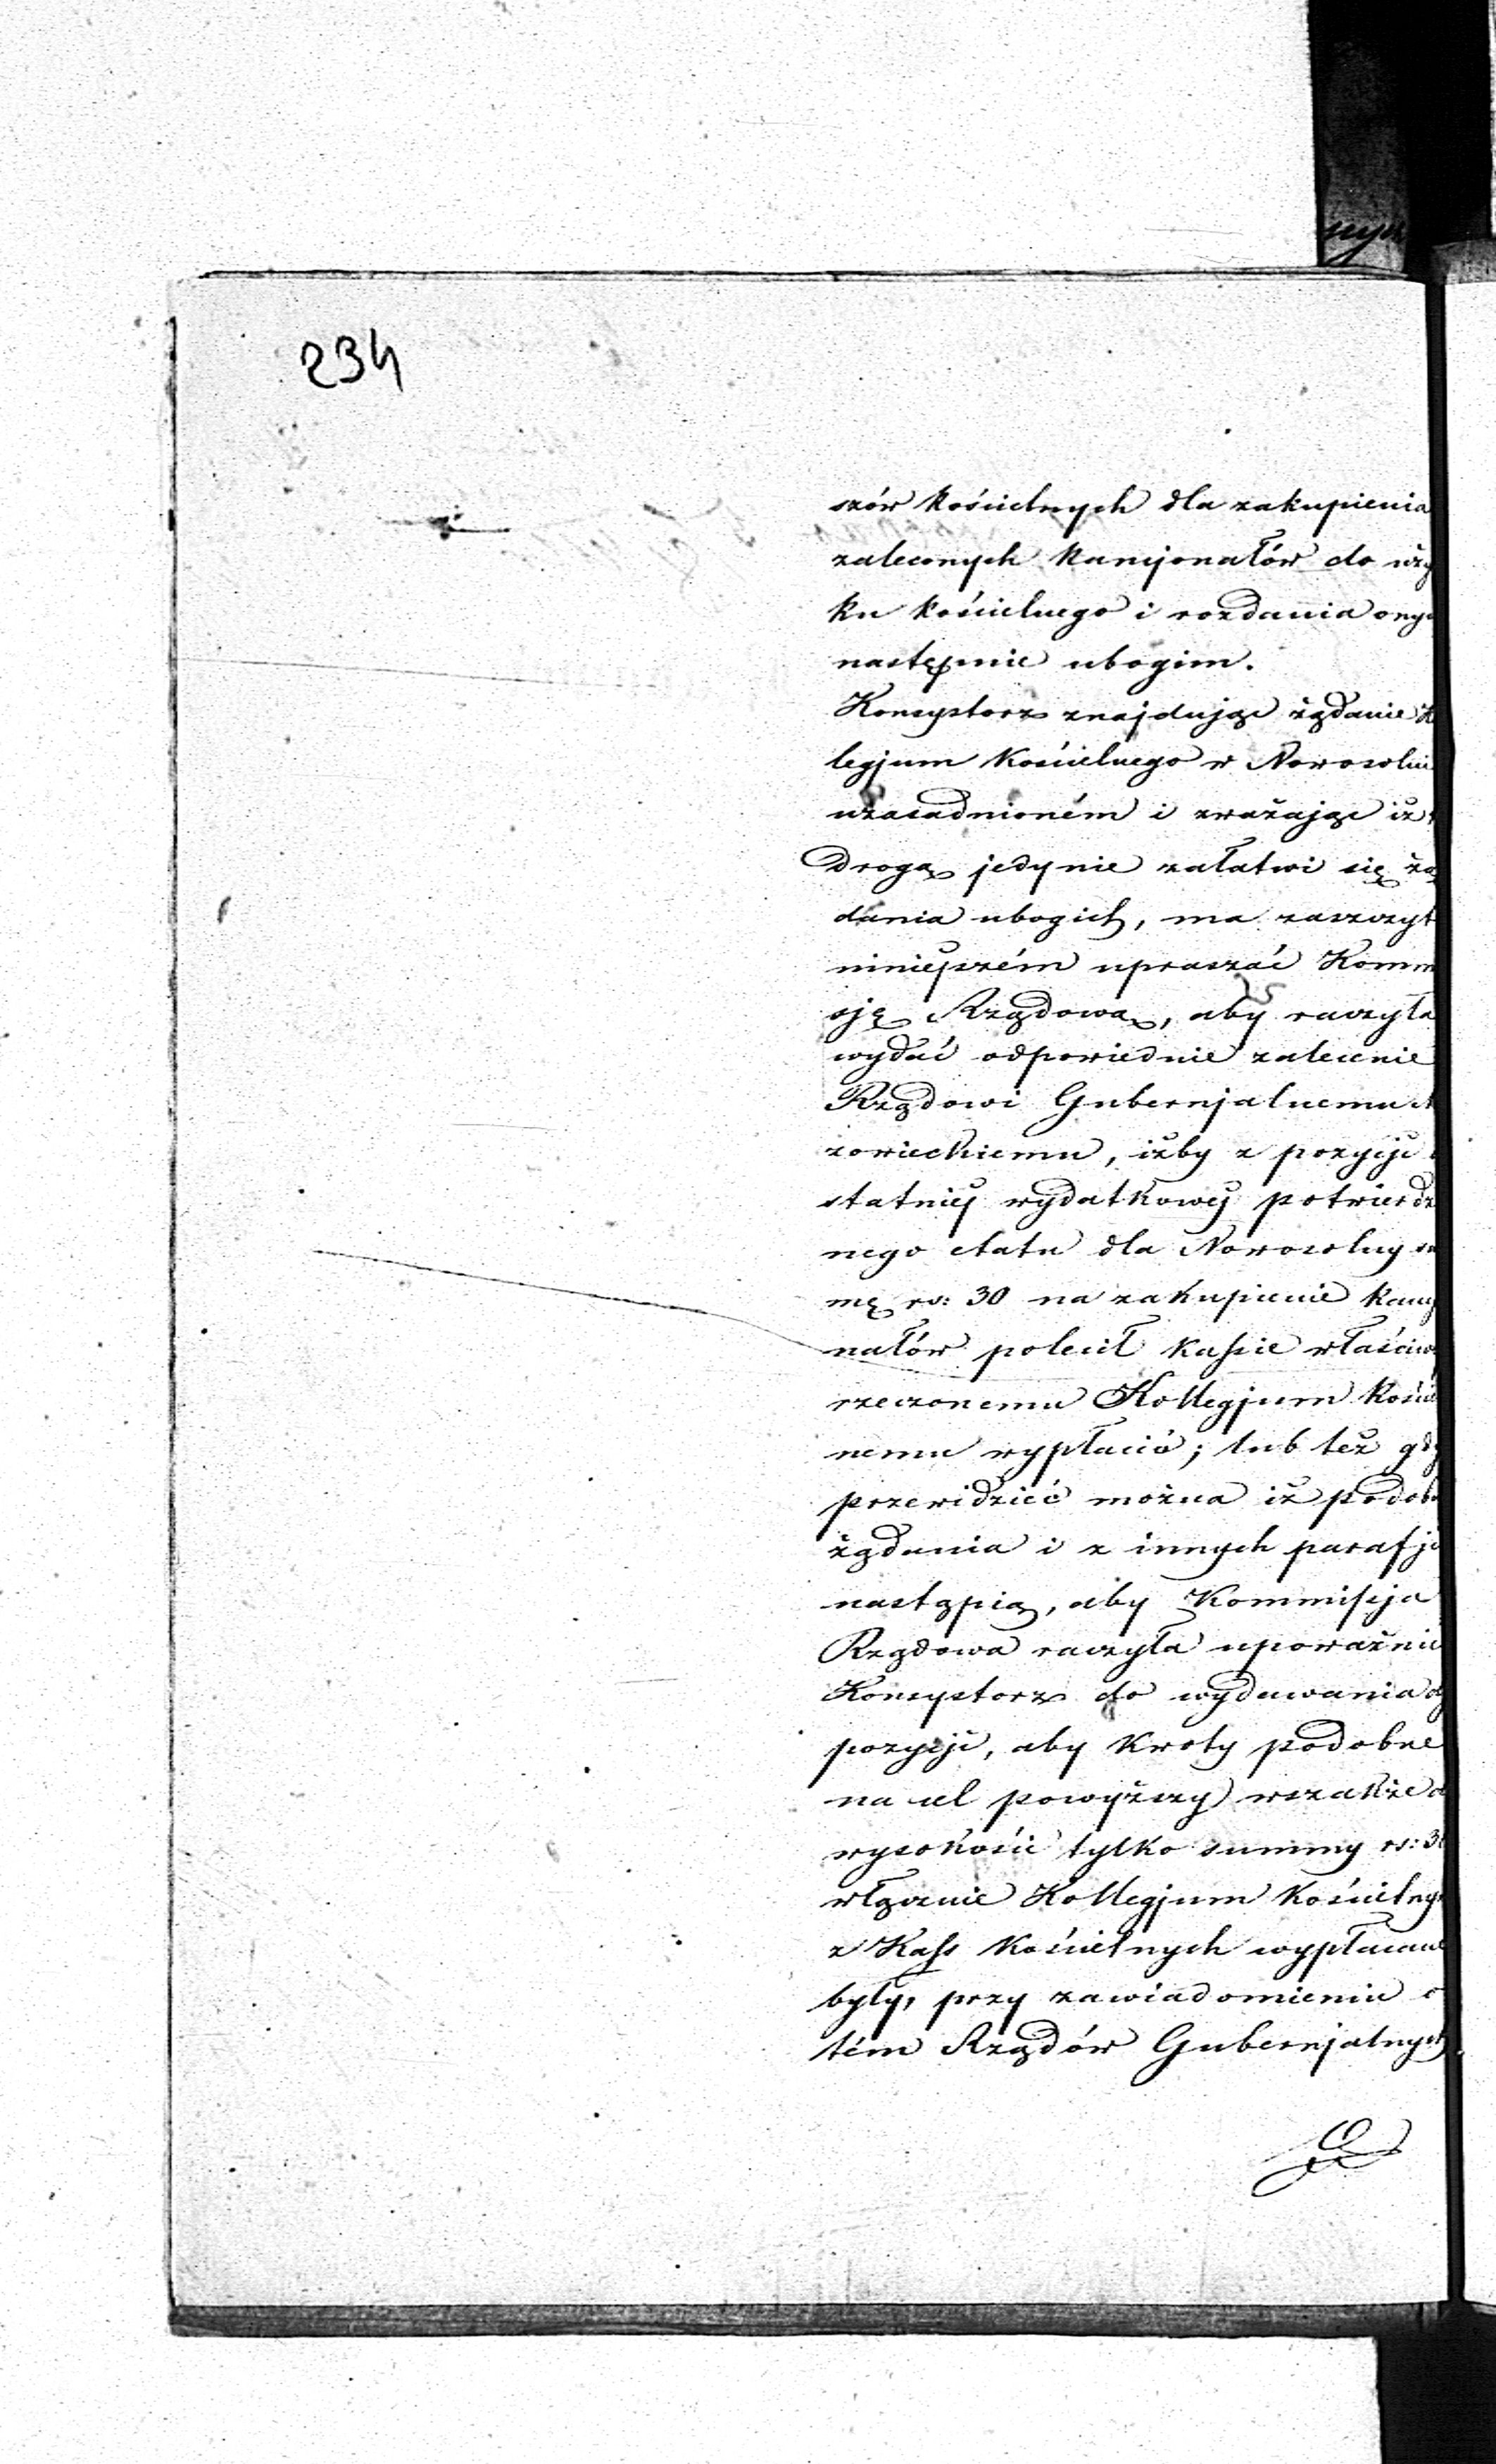 234
szów kościelnych dla zakupienia
zaleconych kancjonałów do uży
ku kościelnego i rozdania onyc
następnie ubogim.
Konsystorz znajdując żądanie K
legjum Kościelnego w Nowosolne
uzasadnioném i zważając iż t
drogą jedynie załatwi się żą
dania ubogich, ma zaszczyt
niniejszém upraszać Komm
sję Rządową, aby raczyła
wydać odpowiednie zalecenie
Rządowi Gubernjalnemu
zowieckiemu, iżby z pozycji
statniej wydatkowej potwierdz
nego etatu dla Nowosolny su
mę rs: 30 na zakupienie kancj
nałów polecił kassie właściwe
rzeczonemu Kollegjum Kościel
nemu wypłacić; lub też gdy
przewidzieć można iż podob
żądania i z innych parafji
nastąpią, aby Kommissja
Rządowa raczyła upoważnić
Konsystorz do wydawania dy
pozycji, aby kwoty podobne
na cel powyższy wszakże d
wysokości tylko summy rs: 30
włącznie Kollegjum Kościelny
z Kass Kościelnych wypłacane
były, przy zawiadomieniu o
tém Rządów Gubernjalnych.